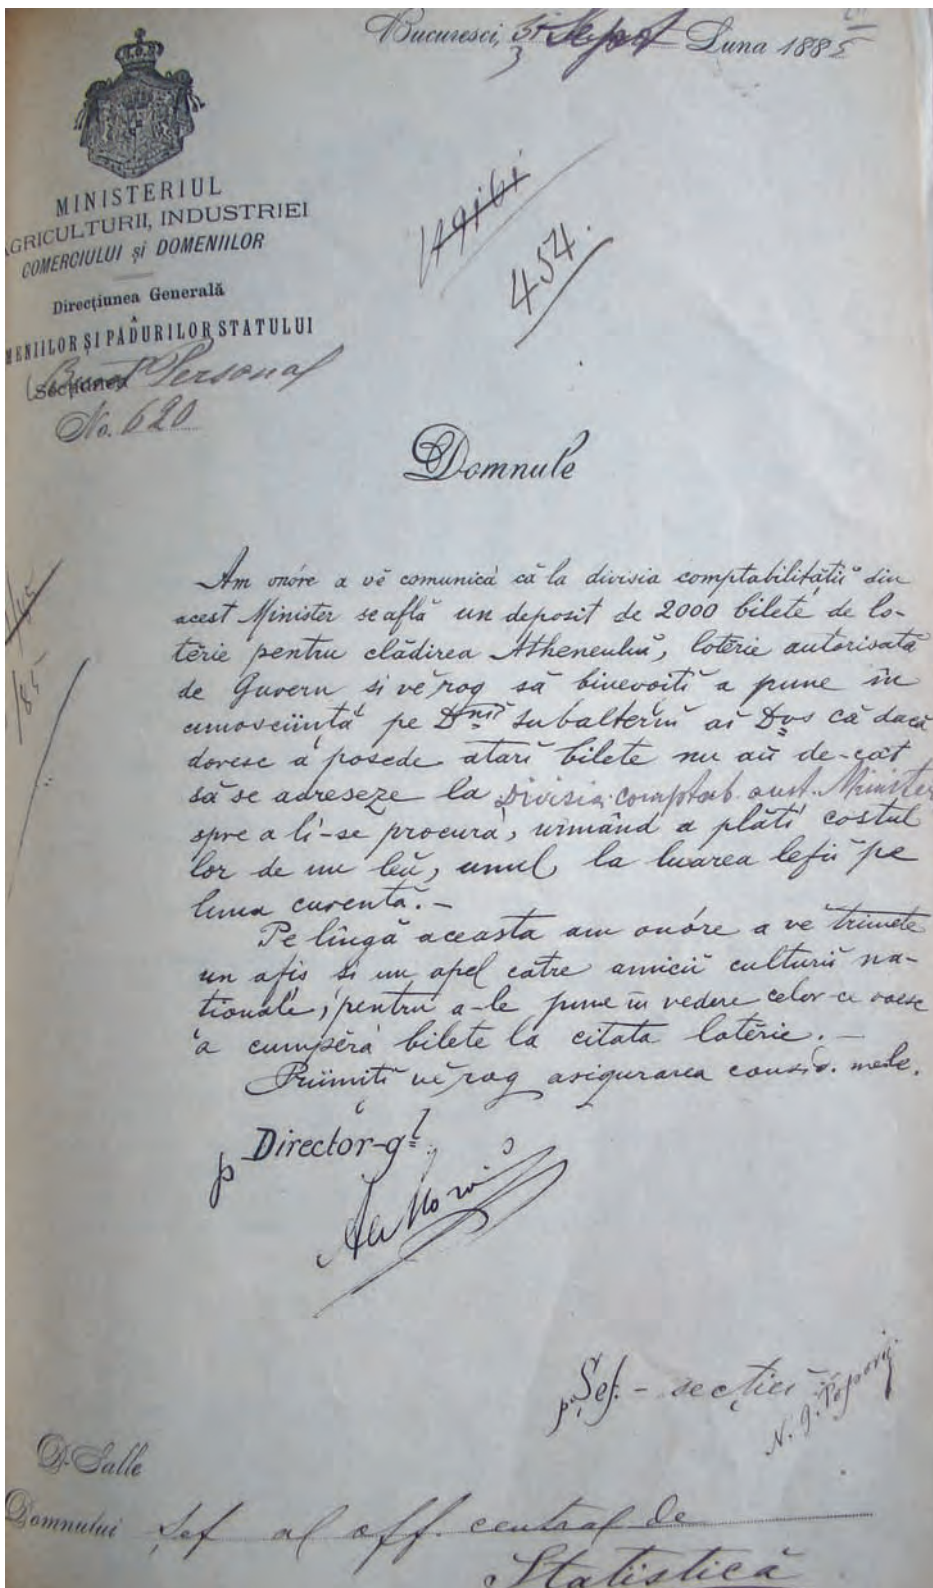 Bucuresci, 3 Sept Luna 1885
MINISTERIUL
AGRICULTURII, INDUSTRIEI
COMERCIULUI și DOMENIILOR
Direcțiunea Generală
A
MENIILOR ȘI PĂDURILOR STATULUI
Secțiunea Personal
No. 620
454.
Domnule
Am onóre a vĕ comunica că la divisia comptabilităței din
acest Minister se află un deposit de 2000 bilete de lo-
tĕrie pentru clădirea Atheneului, lotĕrie autorisată
de Guvern si vĕ rog să binevoiti a pune în
cunosciință pe Dnii subalternii ai Dvs că dacă
doresc a posede atari bilete nu aŭ de-cât
să se adreseze la Divisia comptab. acest. Minister
spre a li-se procura, urmând a plăti costul
lor de un leŭ, unul, la luarea lefii pe
luna curentă. -
Pe lîngă aceasta am onóre a vĕ trimete
un afis si un apel catre amicii culturii na-
tionale, pentru a-le pune in vedere celor-ce voesc
a cumpĕra bilete la citata lotĕrie. -
Priimiti vĕ rog asigurarea consid. mele.
p Director-gl.
p. Șef. - secției
N. G. Popovici
D-Salle
Domnului Șef al off. central de
Statistică